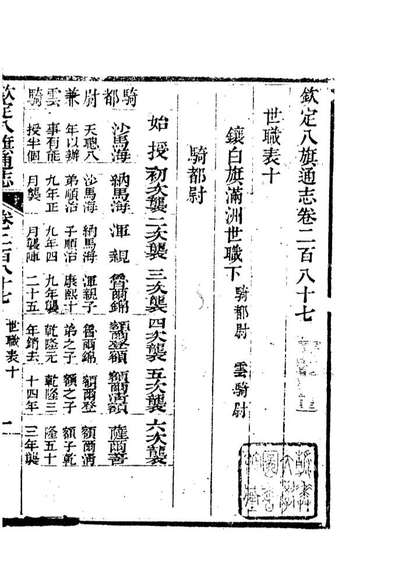 欽定八旗通志卷二百八十七
世職表十
鑲白旗滿洲世職下 騎都尉 雲騎尉
騎都尉
始授 初次襲 二次襲 三次襲 四次襲 五次襲 六次襲
騎都 沙馬海 納馬海 渾親 魯爾錦 額爾登額 額爾清額 薩爾善
尉 天聰八 沙馬海 納馬海 渾親子 魯爾錦 額爾登 額爾清
兼 年以辦 弟順治 子順治 康熙十 弟之子 額之子 額子乾
雲 事有能 九年正 九年四 乾隆元 乾隆三 隆五十
騎 授半個 月襲 月襲陣 二十五 年銷去 十四年 三年襲
欽定八旗通志 卷二百八十七 世職表十 一